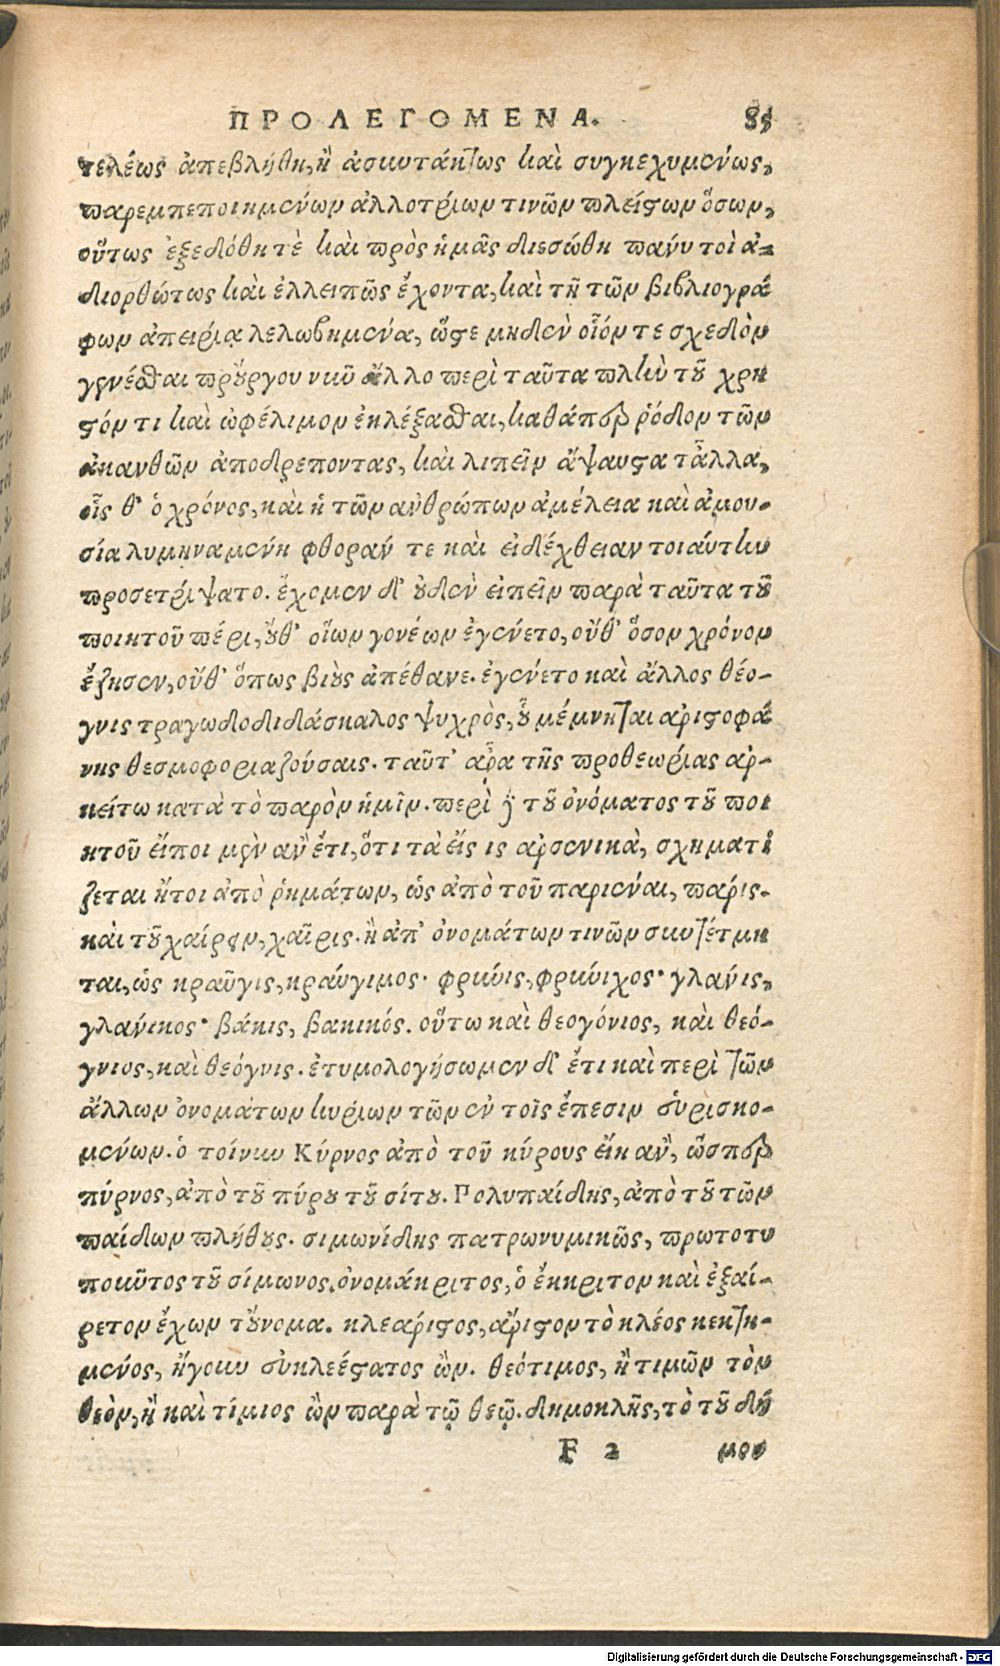 ΠΡΟΛΕΓΟΜΕΝΑ. 85
τελέως ἀπεβλήθη, ἢ ἀσυντάκτως καὶ συγκεχυμένως,
παρεμπεποιημένων ἀλλοτρίων τινῶν πλείστων ὅσων,
οὕτως ἐξεδόθη τὲ καὶ πρὸς ἡμᾶς διεσώθη πάνυ τοὶ ἀ-
διορθώτως καὶ ἐλλειπῶς ἔχοντα, καὶ τῇ τῶν βιβλιογρά
φων ἀπειρίᾳ λελωβημένα, ὥστε μηδὲν οἷόν τε σχεδὸν
γενέσθαι προὔργου νῦν ἄλλο περὶ ταῦτα πλὴν τοῦ χρη
στόν τι καὶ ὠφέλιμον ἐκλέξασθαι, καθάπερ ῥόδον τῶν
ἀκανθῶν ἀποδρέποντας, καὶ λιπεῖν ἄψαυστα τἆλλα,
οἷς θ' ὁ χρόνος, καὶ ἡ τῶν ἀνθρώπων ἀμέλεια καὶ ἀμου-
σία λυμηναμένη φθοράν τε καὶ εἰδέχθειαν τοιαύτην
προσετρίψατο. ἔχομεν δ' οὐδὲν εἰπεῖν παρὰ ταῦτα τοῦ
ποιητοῦ πέρι, οὔθ' οἵων γονέων ἐγένετο, οὔθ' ὅσον χρόνον
ἔζησεν, οὔθ' ὅπως βιοὺς ἀπέθανε. ἐγένετο καὶ ἄλλος θέο-
γνις τραγωδοδιδάσκαλος ψυχρὸς, οὗ μέμνηται ἀριστοφά
νης θεσμοφοριαζούσαις. ταῦτ' ἄρα τῆς προθεωρίας ἀρ-
κείτω κατὰ τὸ παρὸν ἡμῖν. περὶ δὲ τοῦ ὀνόματος τοῦ ποι
ητοῦ εἴποι μὲν ἂν ἔτι, ὅτι τὰ εἴς ις ἀρσενικὰ, σχηματί
ζεται ἤτοι ἀπὸ ῥημάτων, ὡς ἀπὸ τοῦ παριέναι, πάρις.
καὶ τοῦ χαίρειν, χαῖρις. ἢ ἀπ' ὀνομάτων τινῶν συντέτμη
ται, ὡς κραῦγις, κραύγιμος· φρῦνις, φρύνιχος· γλάνις,
γλάνικος· βάκις, βακικός. οὕτω καὶ θεογόνιος, καὶ θεό-
γνιος, καὶ θεόγνις. ἐτυμολογήσωμεν δ' ἔτι καὶ περὶ τῶν
ἄλλων ὀνομάτων κυρίων τῶν ἐν τοῖς ἔπεσιν εὑρισκο-
μένων. ὁ τοίνυν Κύρνος ἀπὸ τοῦ κύρους εἴη ἂν, ὥσπερ
πύρνος, ἀπὸ τοῦ πύρου τοῦ σίτου. Πολυπαίδης, ἀπὸ τοῦ τῶν
παίδων πλήθους. σιμωνίδης πατρωνυμικῶς, πρωτοτύ
που ὄντος τοῦ σίμωνος. ὀνομάκριτος, ὁ ἔκκριτον καὶ ἐξαί-
ρετον ἔχων τοὔνομα. κλεάριστος, ἄριστον τὸ κλέος κεκτη-
μένος, ἤγουν εὐκλεέστατος ὤν. θεότιμος, ἢ τιμῶν τὸν
θεὸν, ἢ καὶ τίμιος ὢν παρὰ τῷ θεῷ. δημοκλῆς, τὸ τοῦ δή
F 2 μου
Digitalisierung gefördert durch die Deutsche Forschungsgemeinschaft - DFG